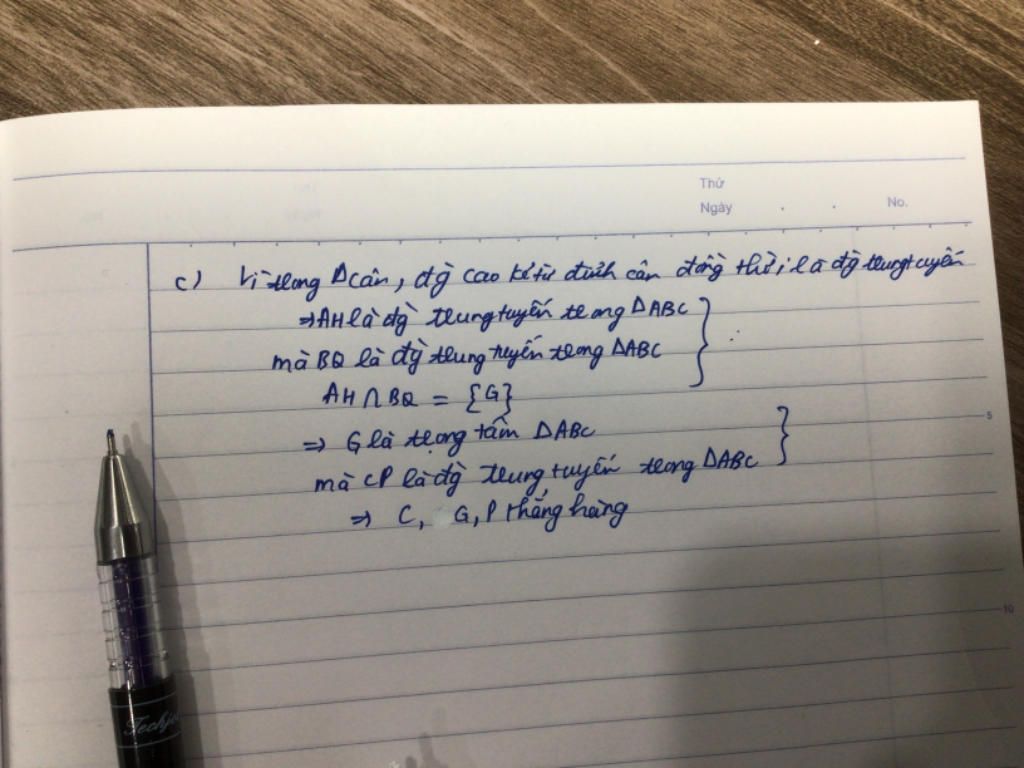 Thứ
Ngày . . No.
c) Vì trong Δcân, đg̀ cao kẻ từ đỉnh cân đồng thời là đg̀ trung tuyến
⇒ AH là đg̀ trung tuyến trong ΔABC
mà BQ là đg̀ trung tuyến trong ΔABC
AH ∩ BQ = {G}
5
⇒ G là trọng tâm ΔABC
mà CP là đg̀ trung tuyến trong ΔABC
⇒ C, G, P thẳng hàng
10